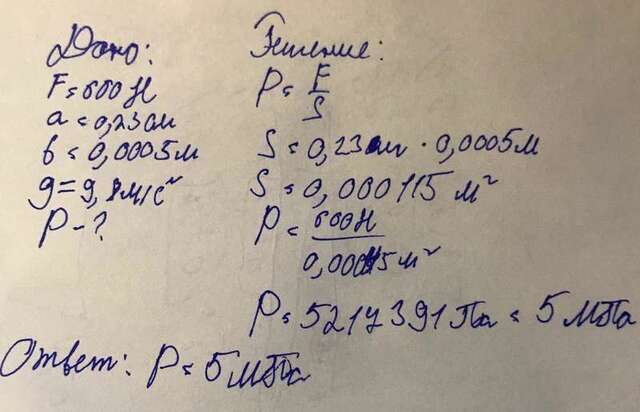 Дано:
F = 600 Н
a = 0,23 м
b = 0,0005 м
g = 9,8 м/с²
P - ?
Решение:
P = F/S
S = 0,23 м · 0,0005 м
S = 0,000115 м²
P = 600 Н / 0,000115 м²
P = 5217391 Па = 5 МПа
Ответ: P = 5 МПа